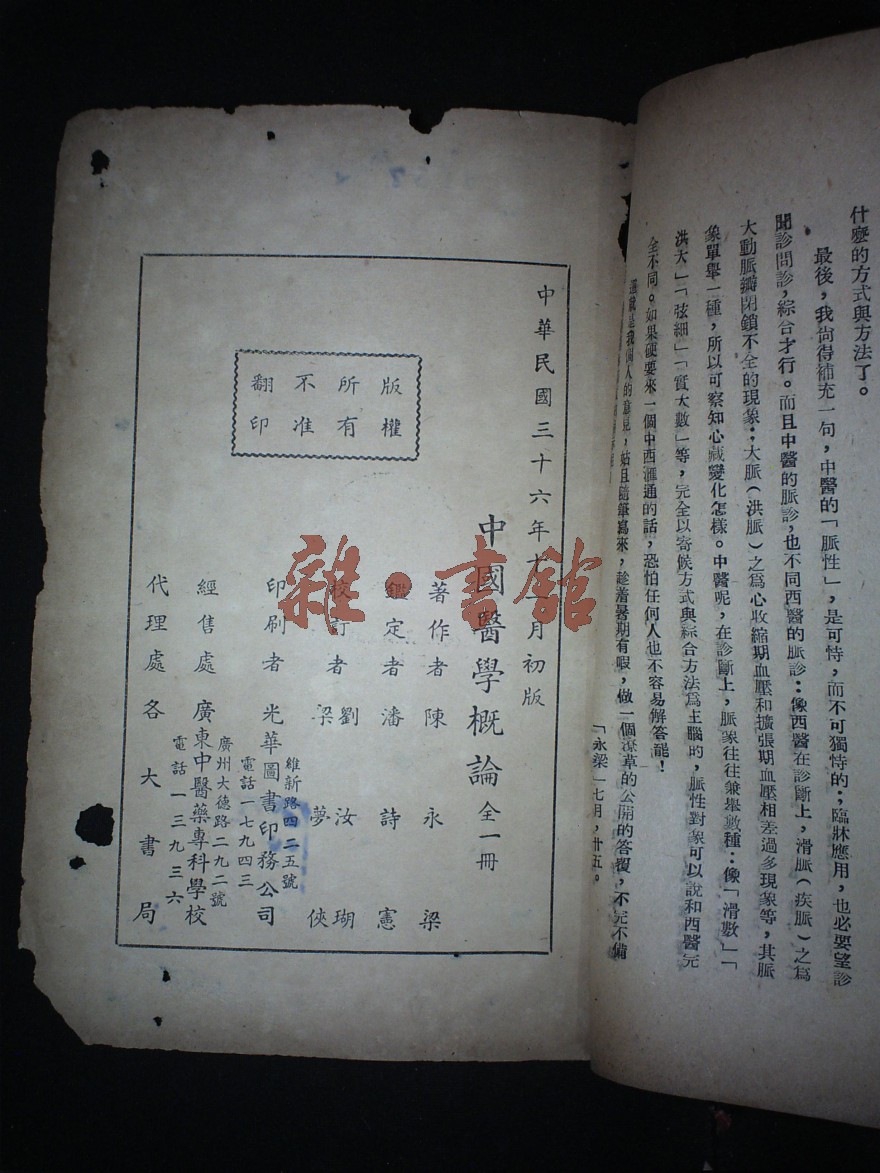 什麼的方式與方法了。
最後，我尙得補充一句，中醫的「脈性」，是可恃，而不可獨恃的；臨牀應用，也必要望診
聞診問診，綜合才行。而且中醫的脈診，也不同西醫的脈診：像西醫在診斷上，滑脈（疾脈）之爲
大動脈瓣閉鎖不全的現象；大脈（洪脈）之爲心收縮期血壓和擴張期血壓相差過多現象等，其脈
象單舉一種，所以可察知心藏變化怎樣。中醫呢，在診斷上，脈象往往兼舉數種：像「滑數」「
洪大」「弦細」「實大數」等，完全以寄候方式與綜合方法爲主腦旳，脈性對象可以說和西醫完
全不同。如果硬要來一個中西滙通的話，恐怕任何人也不容易解答罷！
還就是我個人的意見，姑且隨筆寫來，趁着暑期有暇，做一個潦草的公開的答覆，不完不備
「永梁」七月，廿五。
中華民國三十六年十 月初版
版權
所有
不准
翻印
中國醫學概論全一冊
著作者陳永梁
鑑定者潘詩憲
校訂者劉汝瑚
梁夢俠
印刷者光華圖書印務公司
維新路四二五號
電話一七九四三
經售處廣東中醫藥專科學校
廣州大德路二九二號
電話一三九三六
代理處各大書局
雜·書館